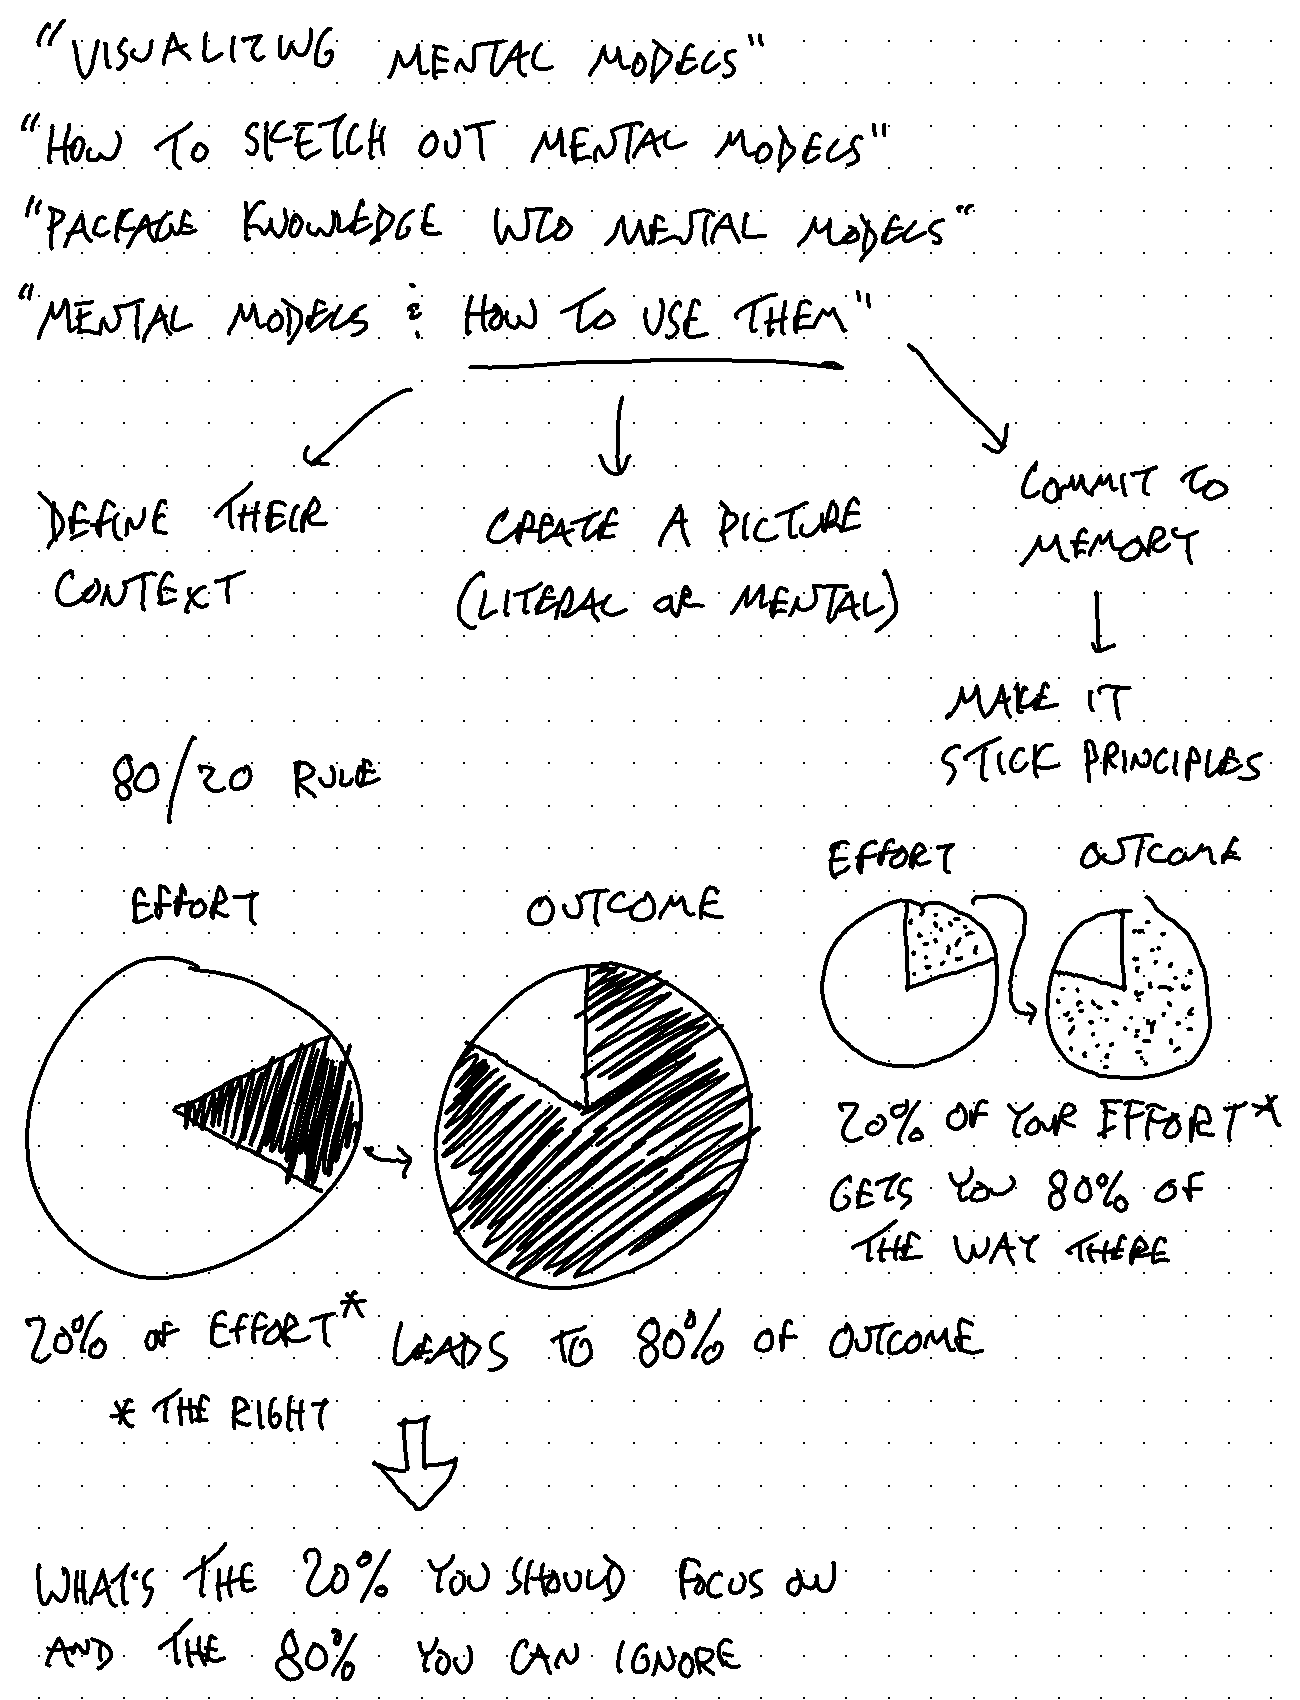 "VISUALIZING MENTAL MODELS"
"HOW TO SKETCH OUT MENTAL MODELS"
"PACKAGE KNOWLEDGE INTO MENTAL MODELS"
"MENTAL MODELS & HOW TO USE THEM"
DEFINE THEIR
CONTEXT
CREATE A PICTURE
(LITERAL OR MENTAL)
COMMIT TO
MEMORY
MAKE IT
STICK PRINCIPLES
80/20 RULE
EFFORT
OUTCOME
EFFORT
OUTCOME
20% OF YOUR EFFORT*
GETS YOU 80% OF
THE WAY THERE
20% OF EFFORT* LEADS TO 80% OF OUTCOME
* THE RIGHT
WHAT'S THE 20% YOU SHOULD FOCUS ON
AND THE 80% YOU CAN IGNORE